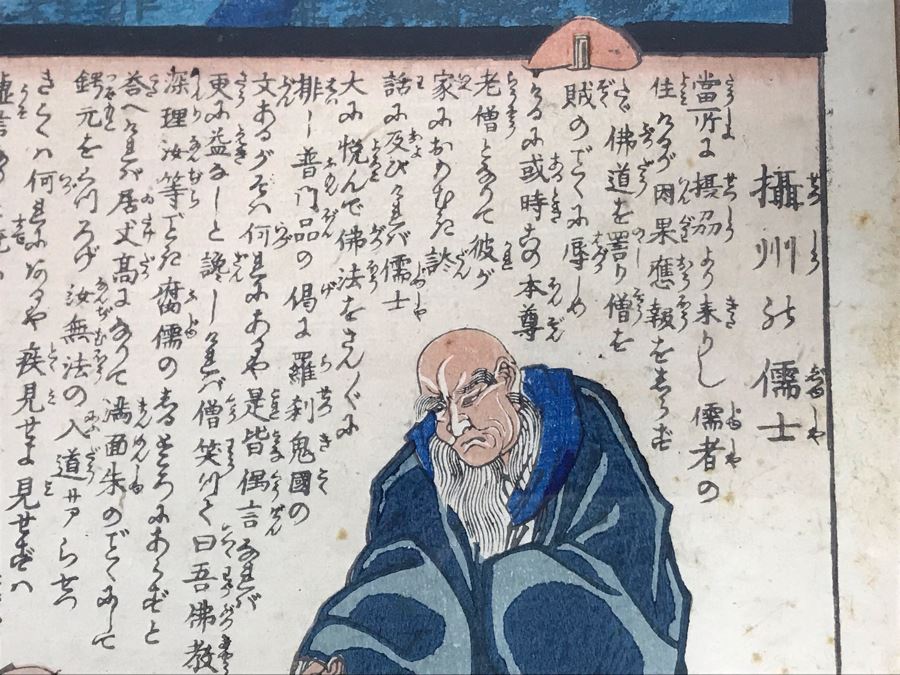 攝州の儒士
當所に摂刕より来りし儒者の
住けるが因果應報をしらず
佛道を詈り僧を
賊のごとくに辱しめ
けるに或時このの本尊
老僧となりて彼が
家におわむき談
話に及びければ儒士
大に悦んで佛法をさんざんに
排し普門品の偈に羅刹鬼國の
文あるがそは何国にあるや是皆偶言なれば
更に益なしと譏しければ僧笑つて曰吾佛教
深理汝等ごとき腐儒のしるところにあらずと
答へければ居丈高になりて満面朱のごとくにして
鍔元をくつろげ汝無法の入道サアらせつ
きこくハ何国にあるや疾見せよ見せずハ
虚言